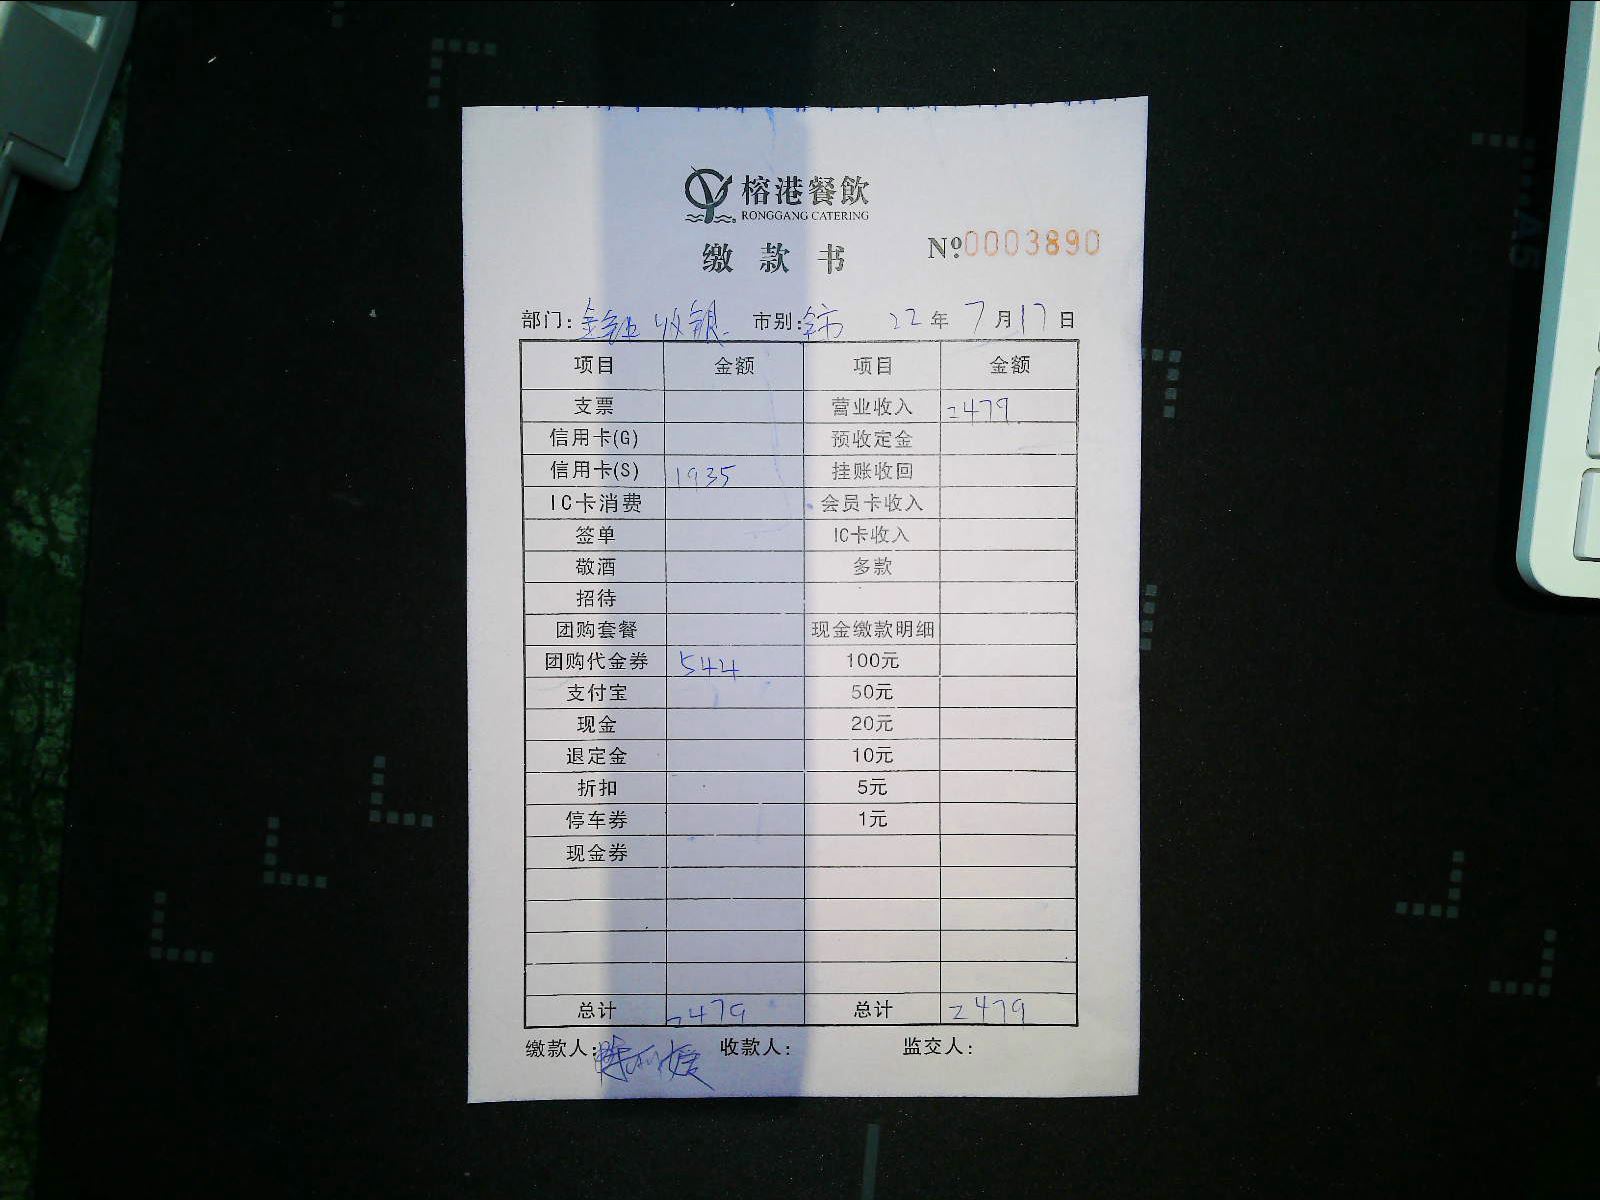 榕港餐飲
RONGGANG CATERING
缴款书 Nº.0003890
部门: 收银 市别:全市 22年7月17日
项目 金额 项目 金额
支票 营业收入 2479
信用卡(G) 预收定金
信用卡(S) 1935 挂账收回
IC卡消费 会员卡收入
签单 IC卡收入
敬酒 多款
招待
团购套餐 现金缴款明细
团购代金券 544 100元
支付宝 50元
现金 20元
退定金 10元
折扣 5元
停车券 1元
现金券
总计 2479 总计 2479
缴款人: 收款人: 监交人: